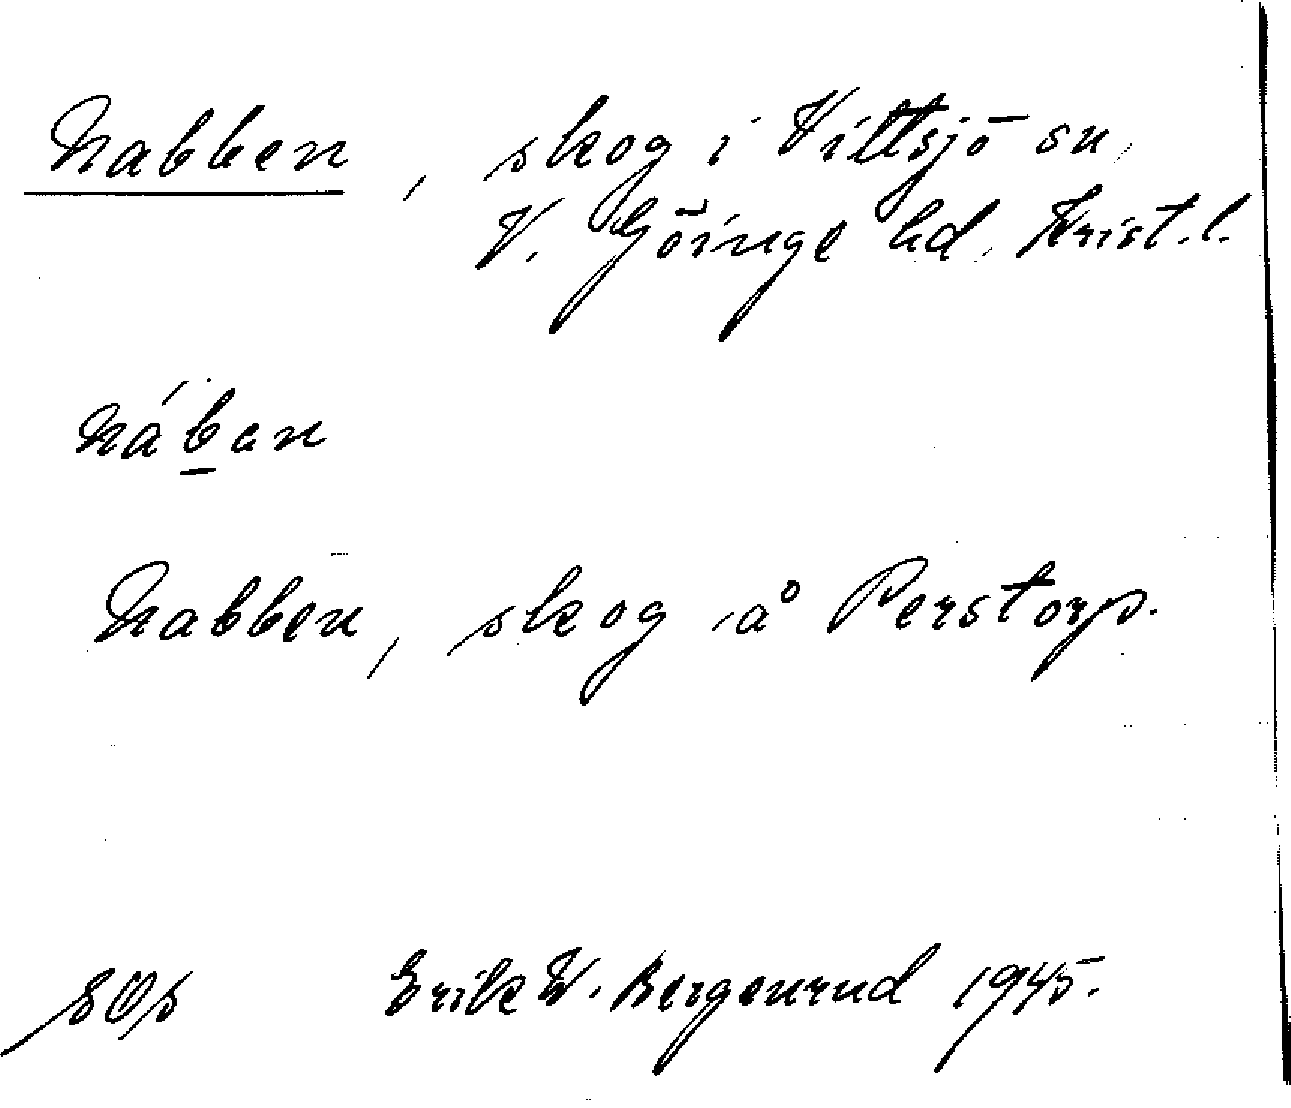 Nabben, skog i Vittsjö sn,
V. Göinge hd, Krist. l.
nában
Nabben, skog å Perstorp.
Erik W. Bergenrud 1945.